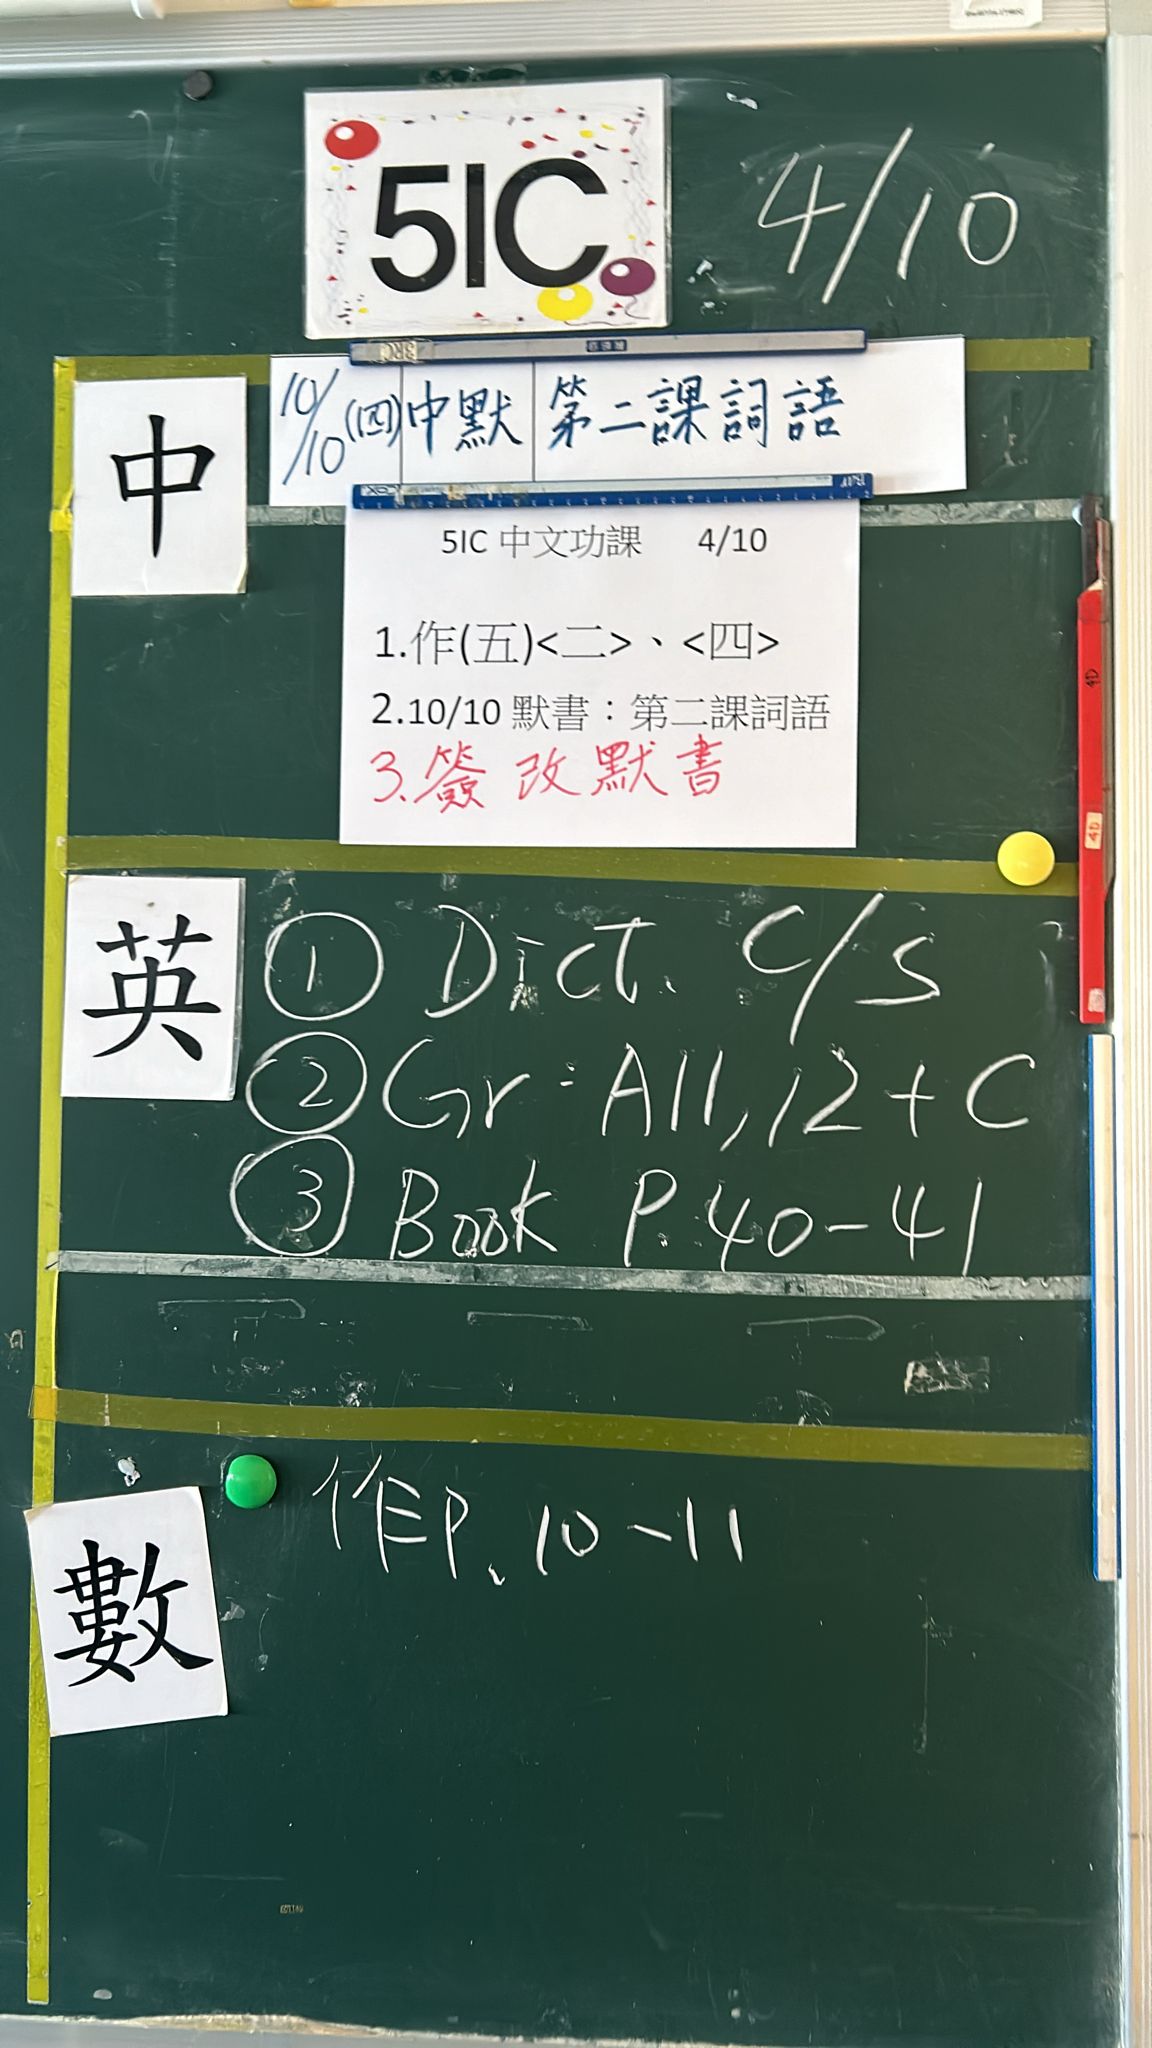 5IC
4/10
中
10/10 (四) 中默 第二課詞語
5IC 中文功課 4/10
1.作(五)<二>、<四>
2.10/10 默書：第二課詞語
3.簽改默書
英
① Dict. C/S
② Gr: A11, 12 + C
③ Book P.40-41
數
作P.10-11